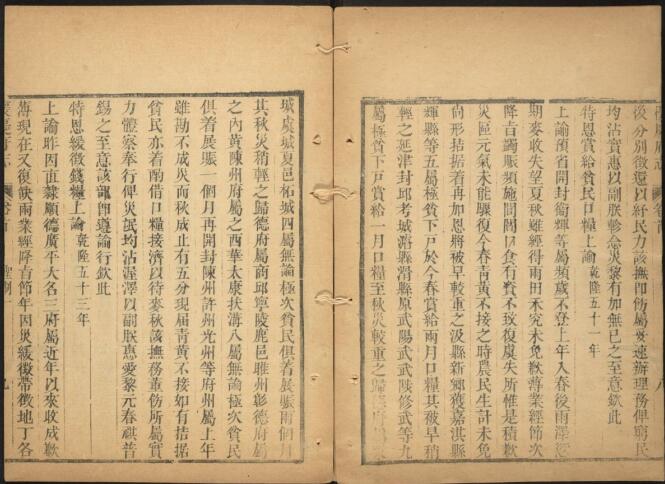 後分別徵還以紓民力該撫即飭屬妥速辦理務俾窮民
均沾實惠以副朕軫念災黎有加無已之至意欽此
特恩賞給貧民口糧上諭乾隆五十一年
上諭豫省開封衛輝等屬頻歲不登上年入春後雨澤愆
期麥收失望夏秋雖經得雨田禾究未免歉薄業經節次
降旨蠲賑頻施閭閻口食有資不致復虞失所惟是積歉
災區元氣未能驟復今春青黃不接之時農民生計未免
尚形拮据着再加恩將被旱較重之汲縣新鄉獲嘉淇縣
輝縣等五屬極貧下戶於今春賞給兩月口糧其被旱稍
輕之延津封邱考城濬縣滑縣原武陽武武陟修武等九
屬極貧下戶賞給一月口糧至秋災較重之歸德府
城虞城夏邑柘城四屬無論極次貧民俱着展賑兩個月
其秋災稍輕之歸德府屬商邱寧陵鹿邑睢州彰德府屬
之內黃陳州府屬之西華太康扶溝八屬無論極次貧民
俱着展賑一個月再開封陳州許州光州等府州屬上年
雖勘不成災而秋成止有五分現屆青黃不接如有拮据
貧民亦着酌借口糧接濟以待麥秋該撫務董飭所屬實
力體察奉行俾災民均沾渥澤以副朕惠愛黎元春祺普
錫之至意該部即遵諭行欽此
特恩緩徵錢糧上諭乾隆五十三年
上諭昨因直隸順德廣平大名三府屬近年以來收成歉
薄現在又復缺雨業經降旨節年因災緩徵帶徵地丁各